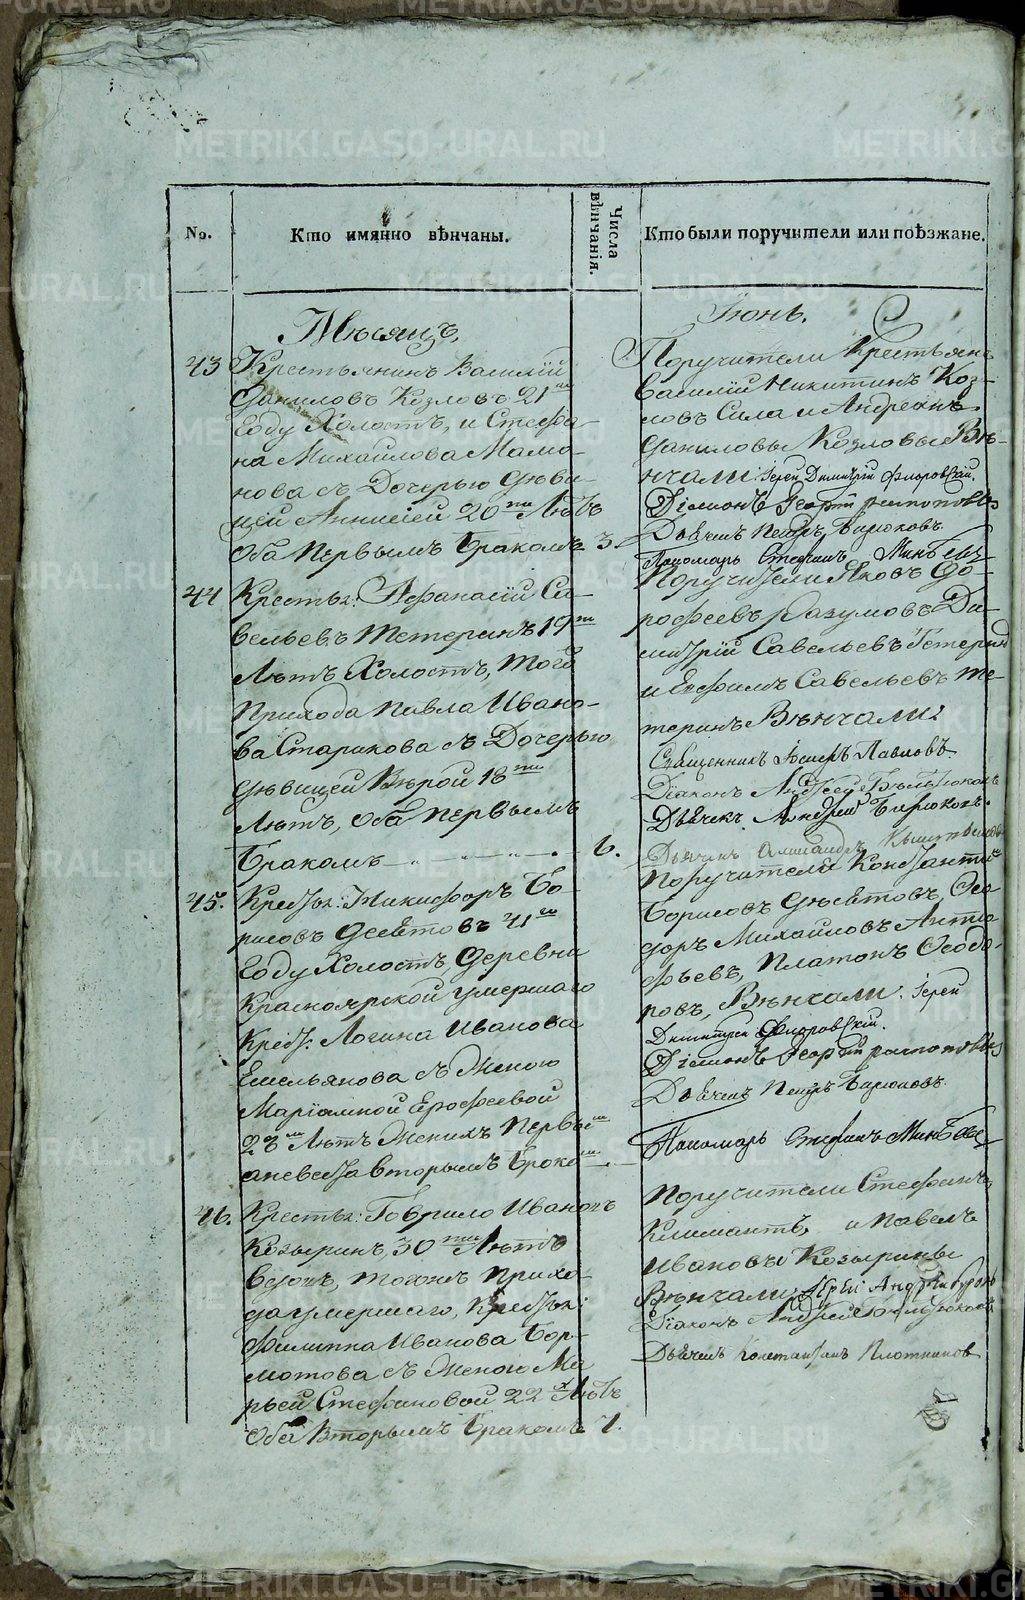 No.
Кто имянно вѣнчаны.
Числа вѣнчанія.
Кто были поручители или поѣзжане.
Мѣсяцъ
Іюнь.
43
Крестьянинъ Василій
Даниловъ Козловъ 21го
Году Холостъ, и Стефа-
на Михайлова Мамо-
нова съ Дочерью Дѣви-
цей Аннисіей 20ти Лѣтъ
Оба Первымъ Бракомъ 3.
Поручители Крестьяне
Василій Никитинъ Коз-
ловъ Сила и Андреянъ
Даниловы Козловы Вѣ-
нчали: Іерей Димитрій Флоровскій.
Діаконъ Георгій
Дьячекъ Петръ Бирюковъ
Пономарь Стефанъ
44
Крестьн: Афанасій Са-
вельевъ Тетеринъ 19ти
Лѣтъ Холостъ, того
Прихода Павла Ивано-
ва Старикова съ Дочерью
Дѣвицей Вѣрой 18ти
Лѣтъ, Оба Первымъ
Бракомъ 6.
Поручители Яковъ До-
рофеевъ Разумовъ Ди-
митрій Савельевъ Тетеринъ
и Ефимъ Савельевъ Те-
теринъ Вѣнчали:
Священникъ Іосифъ Павловъ
Діаконъ Андрей
Дьячекъ Андрей Бирюковъ.
Дьячекъ
45.
Крестьн: Никифоръ Бо-
рисовъ Девятовъ 21го
Году Холостъ, Деревни
Красноярской умершаго
Крест: Логина Иванова
Емельянова съ Женою
Маріамной Ерофеевой
23хъ Лѣтъ Женихъ Первымъ
а невеста вторымъ Бракомъ
Поручители Константинъ
Борисовъ Девятовъ, Фео-
доръ Михайловъ
Платонъ Феодо-
ровъ, Вѣнчали: Іерей
Димитрій Флоровскій.
Діаконъ Георгій
Дьячекъ Петръ Бирюковъ.
Пономарь Стефанъ
46.
Крестьн: Гаврило Ивановъ
Козыринъ 30ти Лѣтъ
Вдовъ, тогожъ Прихо-
да умершаго, Крестьн:
Филиппа Иванова Бор-
мотова съ Женою Ма-
рьей Стефановой 22хъ Лѣтъ
Оба Вторымъ Бракомъ 7.
Поручители Стефанъ,
Климантъ, и Павелъ
Ивановы Козырины
Вѣнчали: Іерей
Діаконъ Андрей
Дьячекъ Константинъ Плотников
METRIKI.GASO-URAL.RU